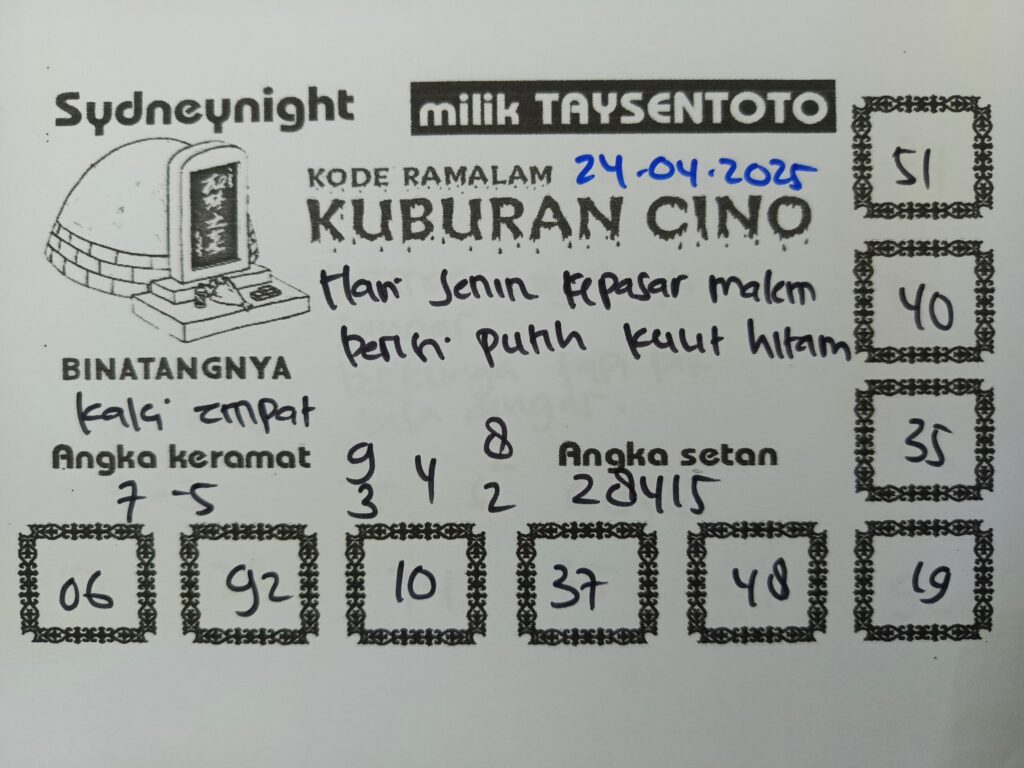 Sydneynight
milik TAYSENTOTO
KODE RAMALAM 24-04-2025
KUBURAN CINO
Hari Senin kepasar malem
berisi putih kulit hitam
BINATANGNYA
kaki empat
Angka keramat
7 - 5
9 4 8
3 2
Angka setan
28415
51
40
35
06 92 10 37 48 19